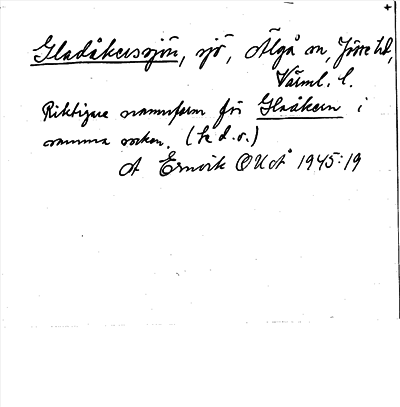 +
Gladåkerssjön, sjö, Älgå sn, Jösse hd,
Värml. l.
Riktigare namnform för Glaåkern i
samma socken. (Se d. o.)
A Ernvik OUÅ 1945:19